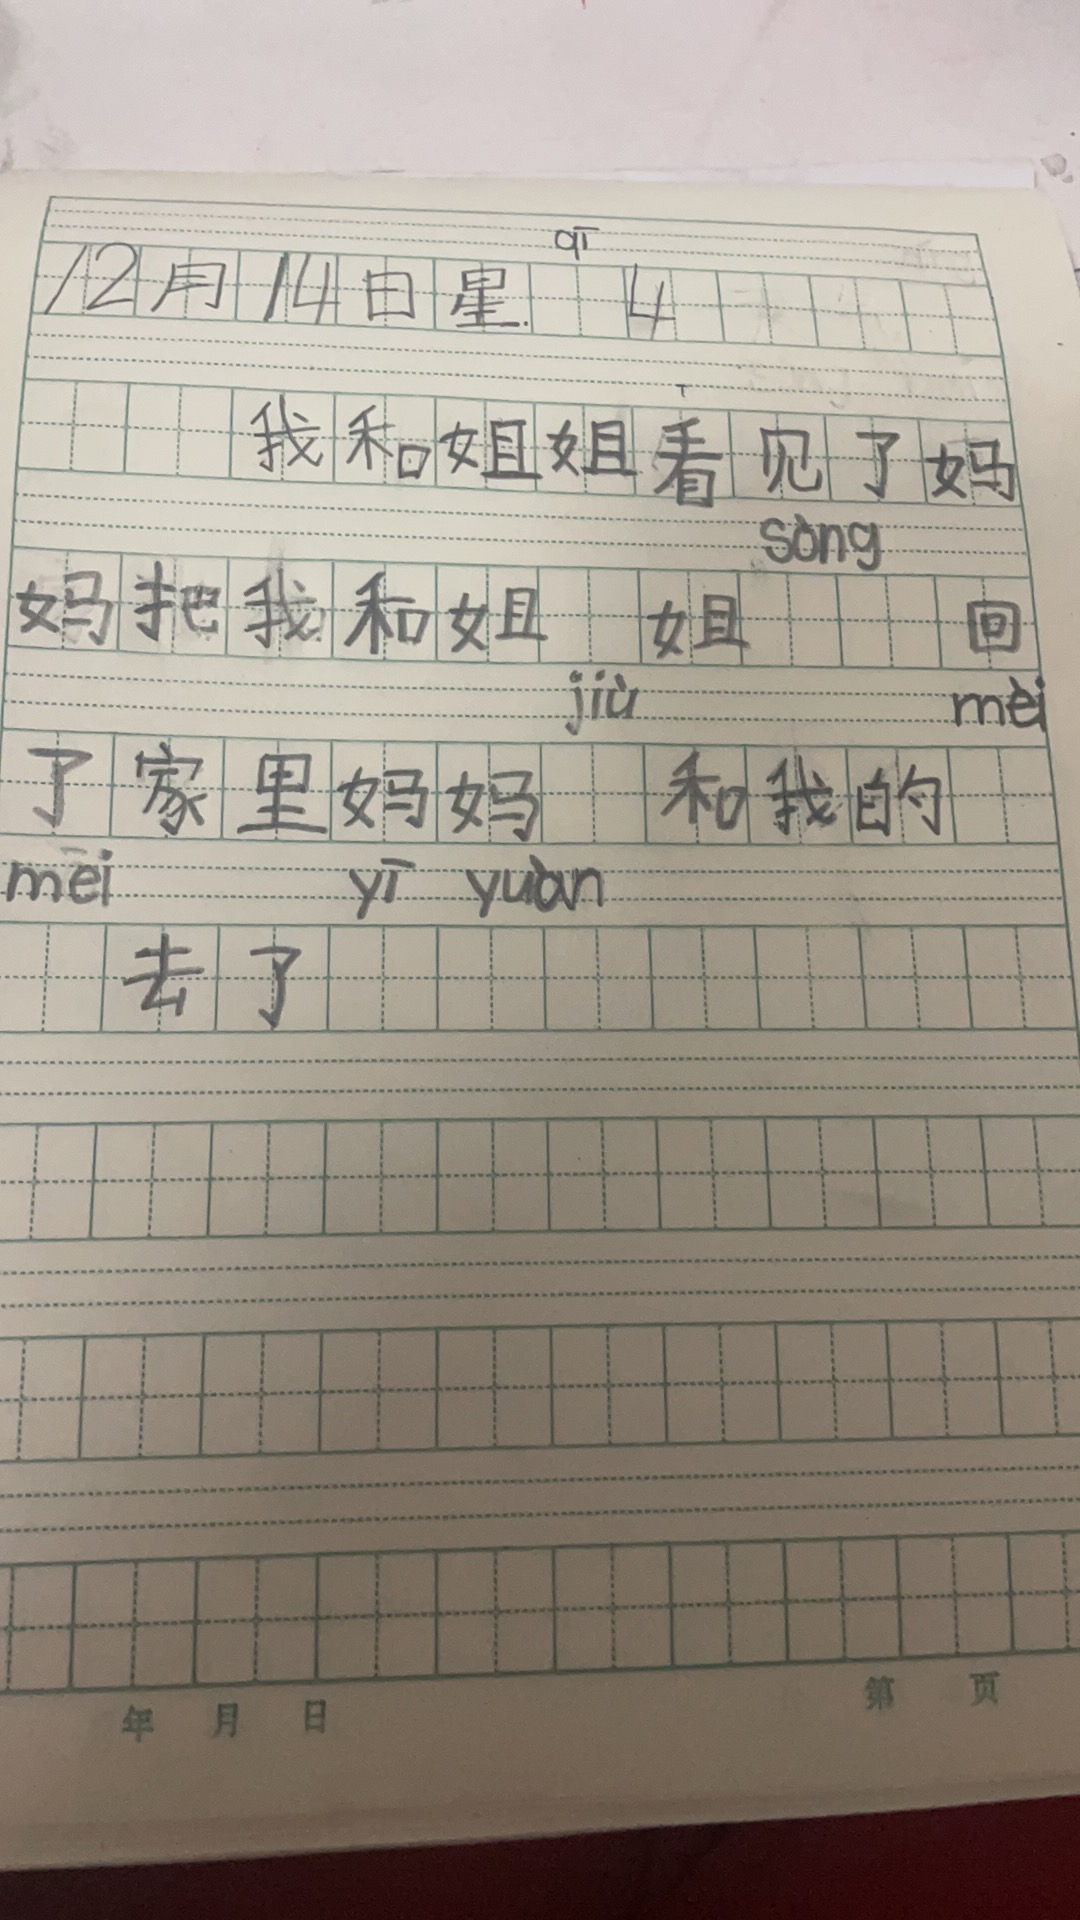 qī
12月14日星 4
我和姐姐看见了妈
sòng
妈把我和姐 姐 回
jiù mèi
了家里妈妈 和我的
mēi yī yuàn
去了
年 月 日 第 页